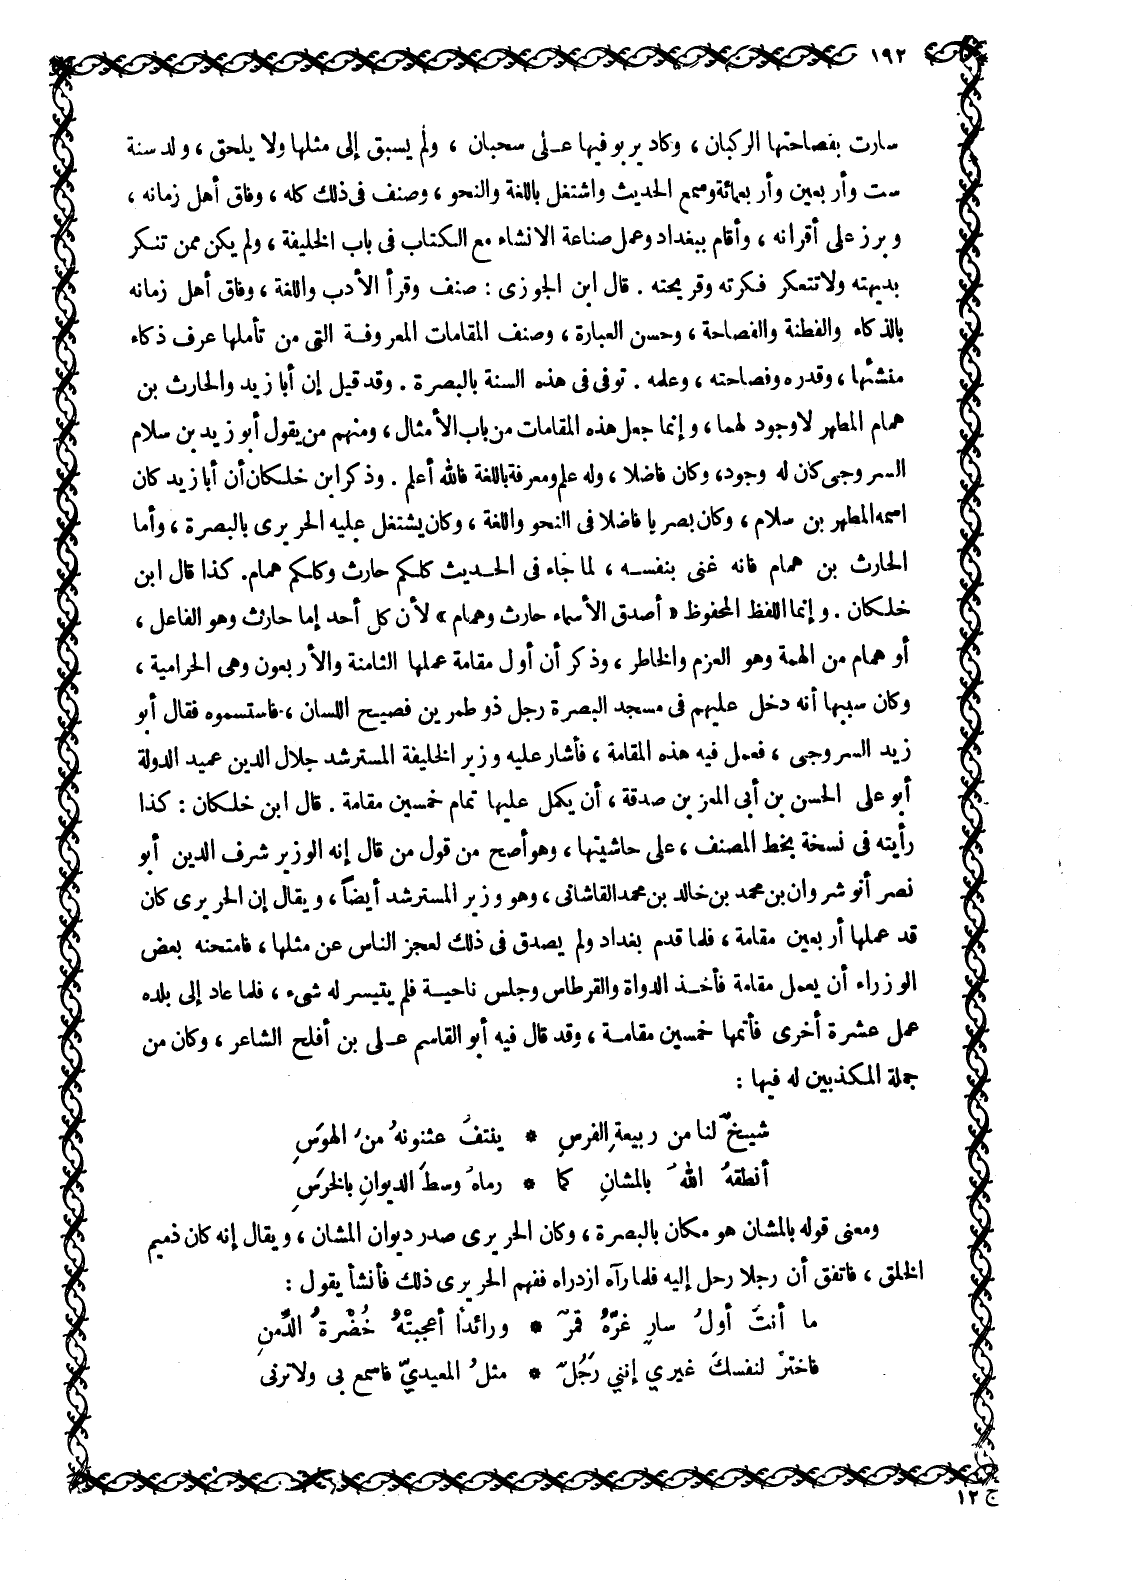 ١٩٢
سارت بفصاحتها الركبان ، وكاد يربو فيها على سحبان ، ولم يسبق إلى مثلها ولا يلحق ، ولد سنة
ست وأربعين وأربعمائة وسمع الحديث واشتغل باللغة والنحو ، وصنف فى ذلك كله ، وفاق أهل زمانه ،
وبرز على أقرانه ، وأقام ببغداد وعمل صناعة الانشاء مع الكتاب فى باب الخليفة ، ولم يكن ممن تنكر
بديهته ولا تتعكر فكرته وقريحته . قال ابن الجوزى : صنف وقرأ الأدب واللغة ، وفاق أهل زمانه
بالذكاء والفطنة والفصاحة ، وحسن العبارة ، وصنف المقامات المعروفة التى من تأملها عرف ذكاء
منشئها ، وقدره وفصاحته ، وعلمه . توفى فى هذه السنة بالبصرة . وقد قيل إن أبا زيد والحارث بن
همام المطهر لا وجود لهما ، وإنما جعل هذه المقامات من باب الأمثال ، ومنهم من يقول أبو زيد بن سلام
السروجى كان له وجود ، وكان فاضلا ، وله علم ومعرفة باللغة فالله أعلم . وذكر ابن خلكان أن أبا زيد كان
اسمه المطهر بن سلام ، وكان بصريا فاضلا فى النحو واللغة ، وكان يشتغل عليه الحريرى بالبصرة ، وأما
الحارث بن همام فانه غنى بنفسه ، لما جاء فى الحديث كلكم حارث وكلكم همام. كذا قال ابن
خلكان . وإنما اللفظ المحفوظ « أصدق الأسماء حارث وهمام » لأن كل أحد إما حارث وهو الفاعل ،
أو همام من الهمة وهو العزم والخاطر ، وذكر أن أول مقامة عملها الثامنة والأربعون وهى الحرامية ،
وكان سببها أنه دخل عليهم فى مسجد البصرة رجل ذو طمرين فصيح اللسان ، فاستسموه فقال أبو
زيد السروجى ، فعمل فيه هذه المقامة ، فأشار عليه وزير الخليفة المسترشد جلال الدين عميد الدولة
أبو على الحسن بن أبى المعز بن صدقة ، أن يكمل عليها تمام خمسين مقامة . قال ابن خلكان : كذا
رأيته فى نسخة بخط المصنف ، على حاشيتها ، وهو أصح من قول من قال إنه الوزير شرف الدين أبو
نصر أنوشروان بن محمد بن خالد بن محمد القاشانى ، وهو وزير المسترشد أيضاً ، ويقال إن الحريرى كان
قد عملها أربعين مقامة ، فلما قدم بغداد ولم يصدق فى ذلك لعجز الناس عن مثلها ، فامتحنه بعض
الوزراء أن يعمل مقامة فأخذ الدواة والقرطاس وجلس ناحية فلم يتيسر له شىء ، فلما عاد إلى بلده
عمل عشرة أخرى فأتمها خمسين مقامة ، وقد قال فيه أبو القاسم على بن أفلح الشاعر ، وكان من
جملة المكذبين له فيها :
شيخٌ لنا من ربيعةِ الفرسِ * ينتفُ عثنونهُ من الهوَسِ
أنطقهُ اللهُ بالمشانِ كما * رماهُ وسطَ الديوانِ بالخرَسِ
ومعنى قوله بالمشان هو مكان بالبصرة ، وكان الحريرى صدر ديوان المشان ، ويقال إنه كان ذميم
الخلق ، فاتفق أن رجلا رحل إليه فلما رآه ازدراه ففهم الحريرى ذلك فأنشأ يقول :
ما أنتَ أولُ سارٍ غرّهُ قمرٌ * ورائداً أعجبتْهُ خُضْرةُ الدِّمنِ
فاخترْ لنفسكَ غيري إنني رَجُلٌ * مثلُ المعيديّ فاسمع بى ولا ترنى
ج ١٢